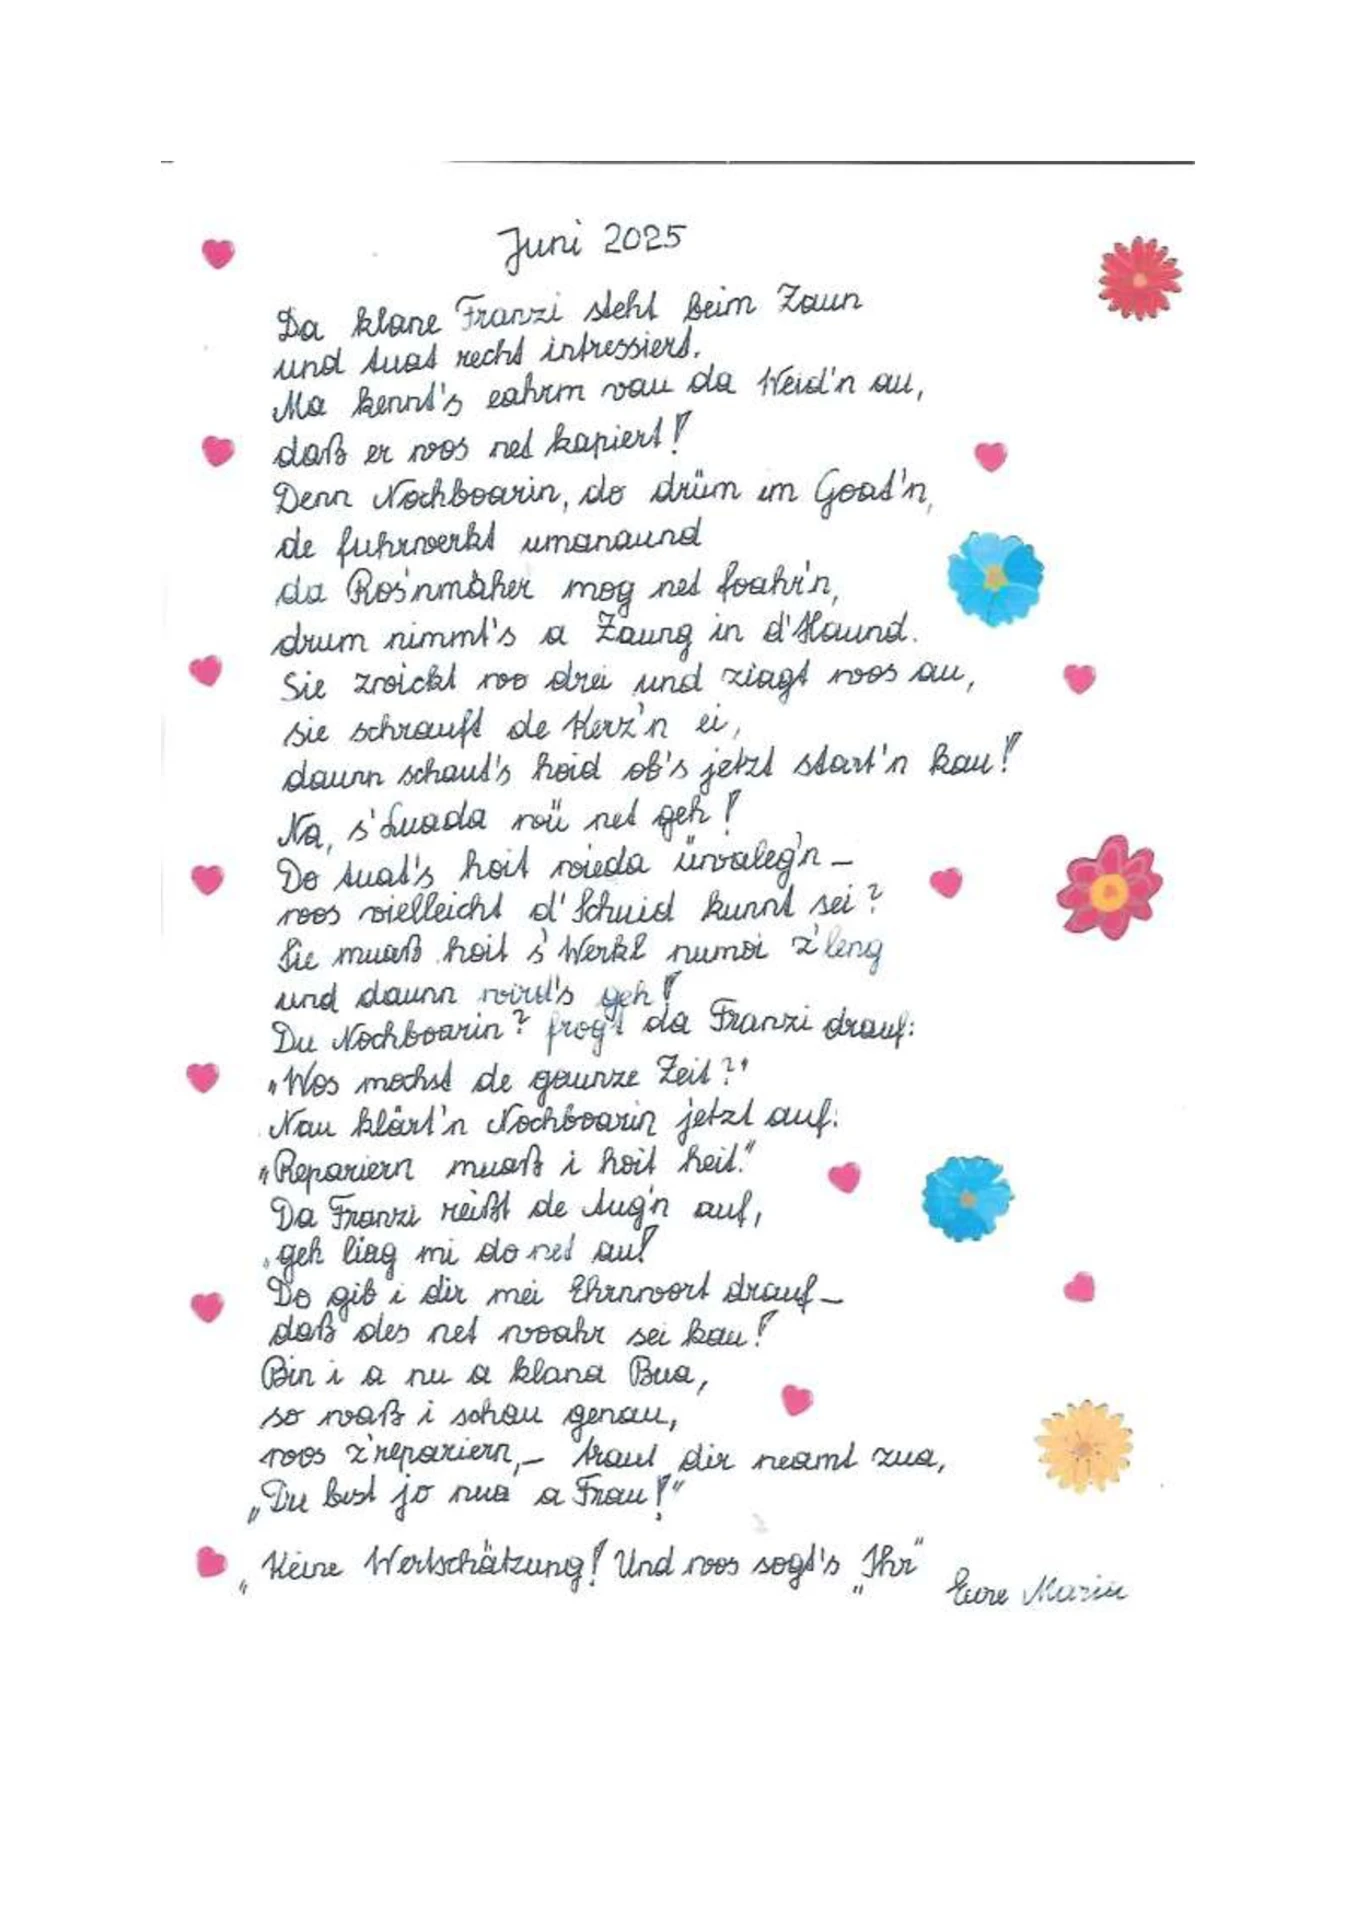 Juni 2025
Da klane Franzi steht beim Zaun
und tuat recht intressiert.
Ma kennt's eahm vau da Weid'n au,
daß er wos net kapiert!
Denn Nochboarin, do drüm im Goat'n,
de fuhrwerkt umanaund
da Ros'nmäher mog net foahr'n,
drum nimmt's a Zaung in d'Haund.
Sie zwickt wo drei und ziagt wos au,
sie schrauft de Kerz'n ei,
daunn schaut's hoid ob's jetzt start'n kau!
Na, s'Luada wü net geh!
Do tuat's hoit wieda ürwaleg'n –
wos vielleicht d'Schuid kunnt sei?
Sie muaß hoit s'Werkl numoi z'leng
und daunn wird's geh!
Du Nochboarin? frogt da Franzi drauf:
„Wos mochst de gaunze Zeit?"
Nau klärt'n Nochboarin jetzt auf:
„Repariern muaß i hoit heit."
Da Franzi reißt de Aug'n auf,
„geh liag mi do net au!
Do gib i dir mei Ehrnwort drauf –
daß des net woahr sei kau!
Bin i a nu a klana Bua,
so waß i schau genau,
wos z'repariern, – traut dir neamt zua,
„Du bist jo nua a Frau!"
„Keine Wertschätzung! Und wos sogt's „Ihr"
Eure Marie